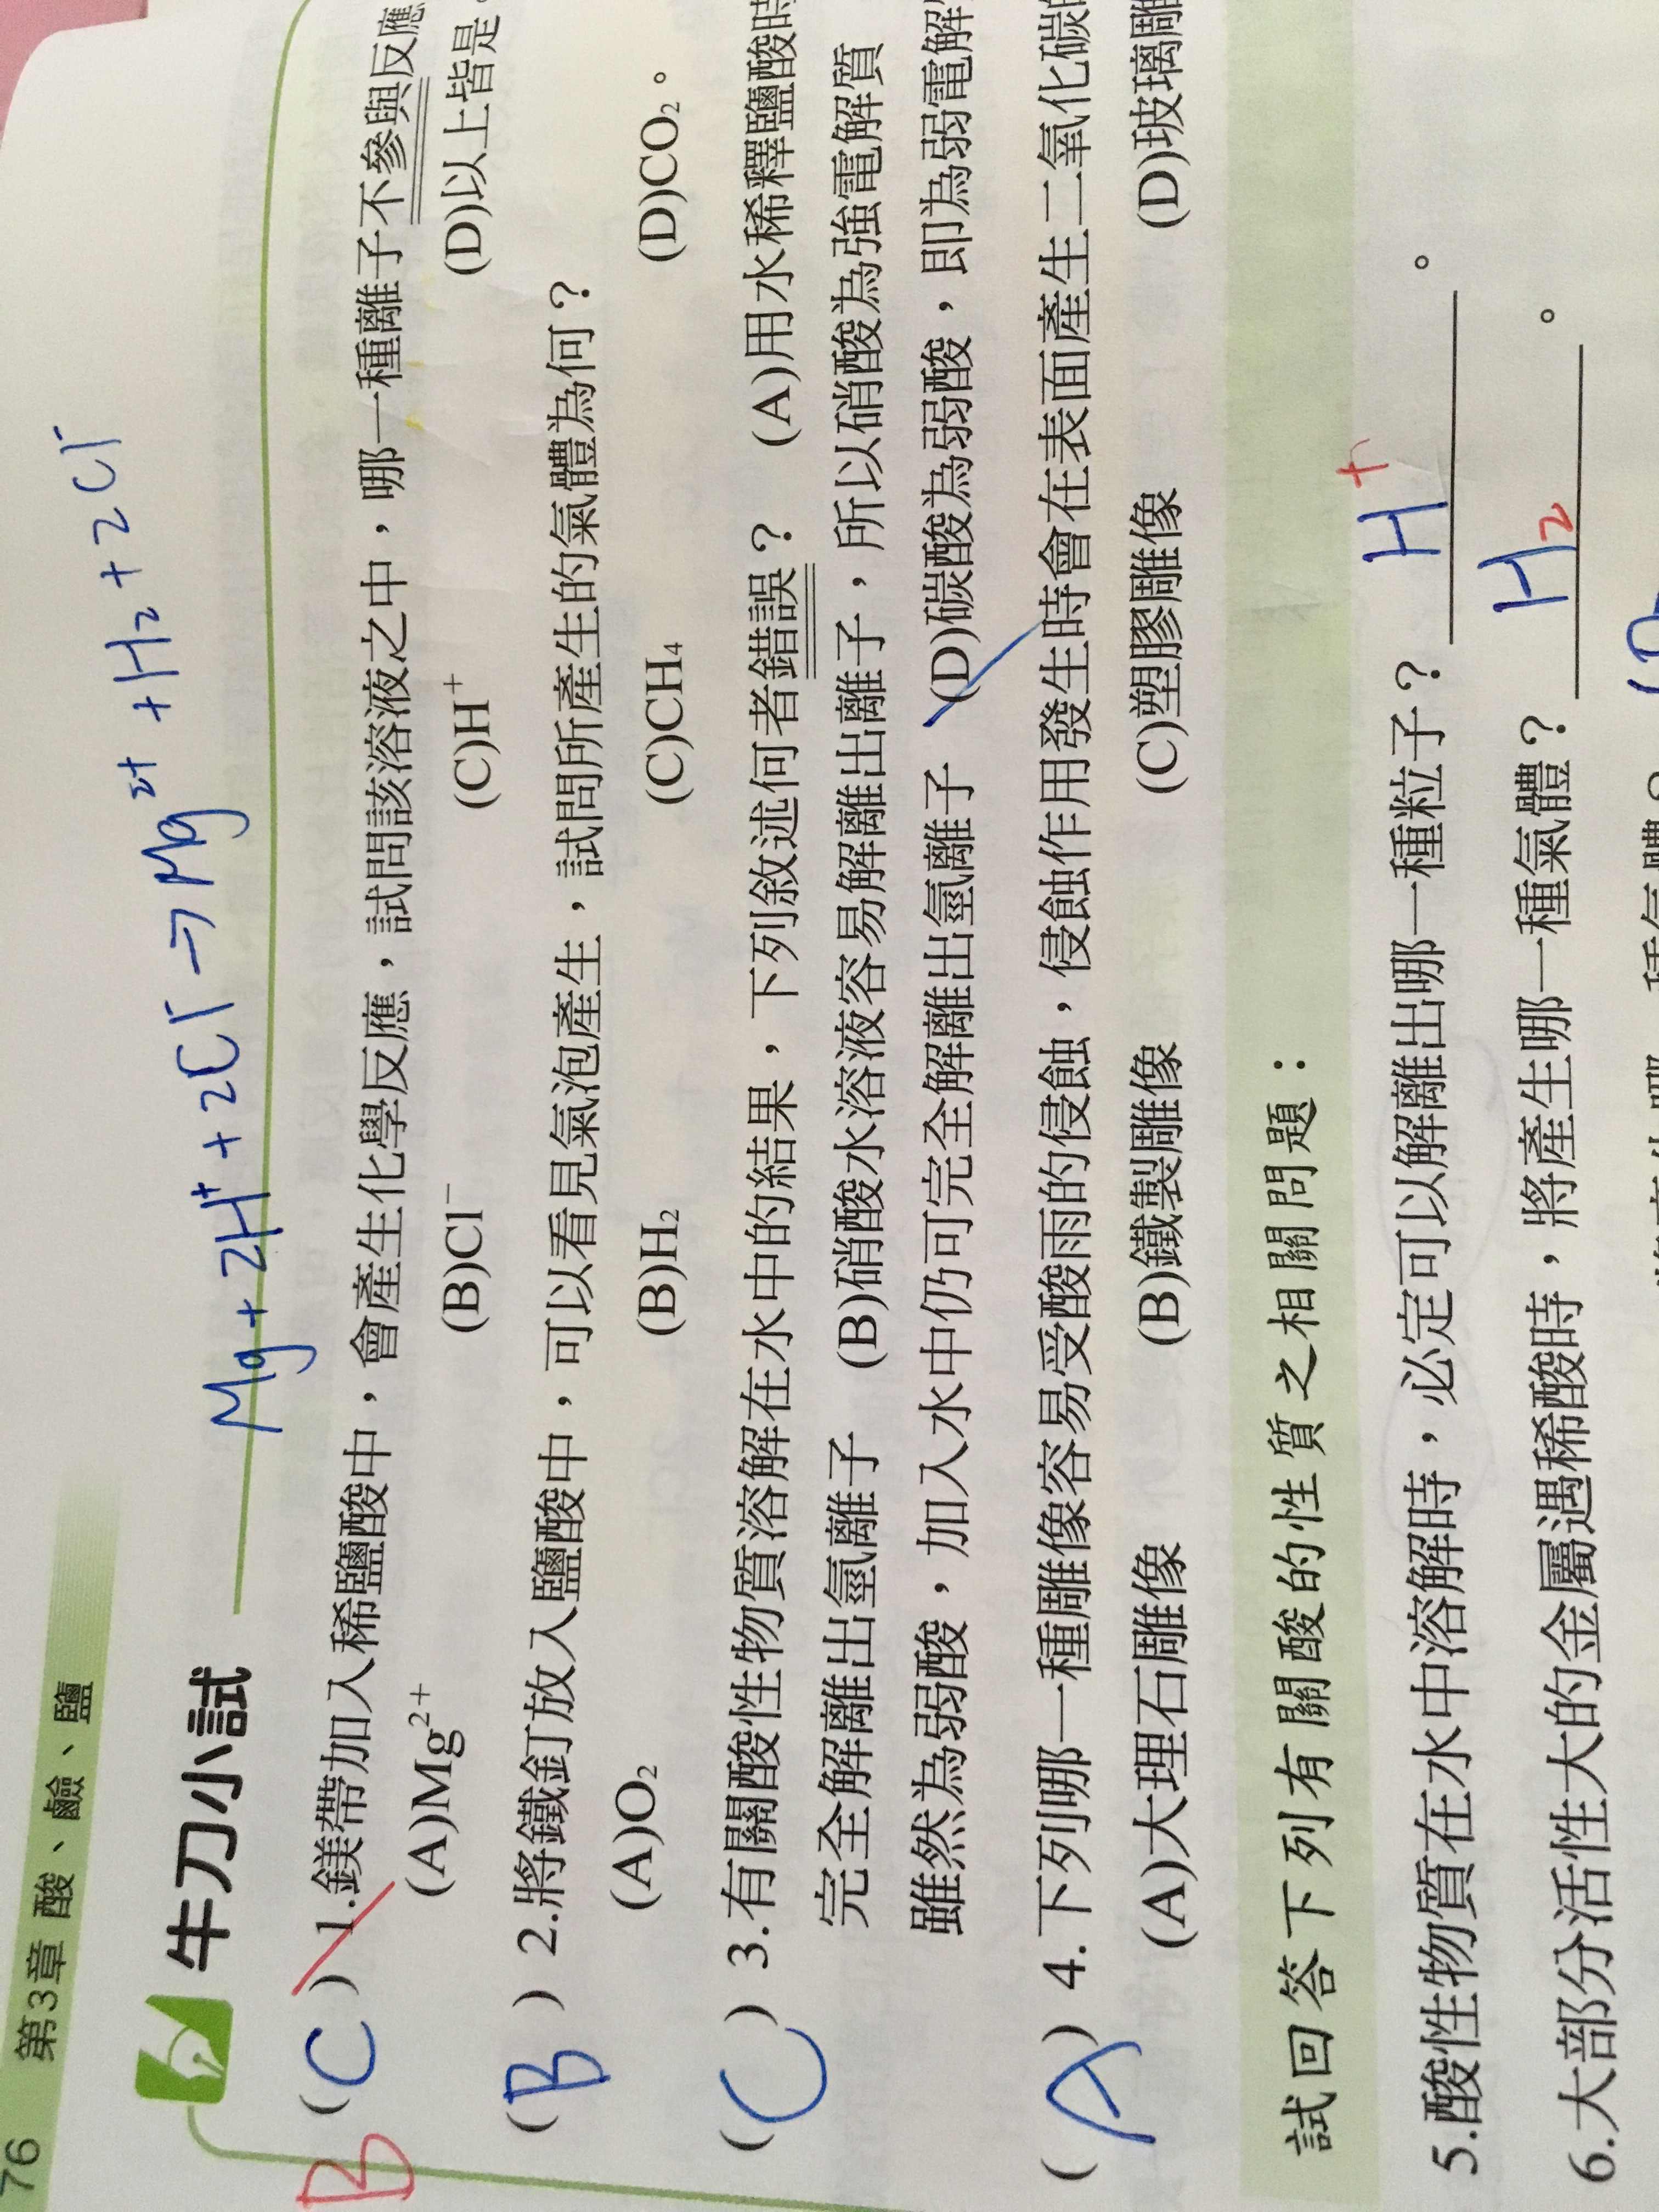 76 第3章 酸、鹼、鹽
牛刀小試
Mg + 2H⁺ + 2Cl⁻ → Mg²⁺ + H₂ + 2Cl⁻
B ( C ) 1.鎂帶加入稀鹽酸中，會產生化學反應，試問該溶液之中，哪一種離子不參與反應
(A)Mg²⁺ (B)Cl⁻ (C)H⁺ (D)以上皆是。
( B ) 2.將鐵釘放入鹽酸中，可以看見氣泡產生，試問所產生的氣體為何？
(A)O₂ (B)H₂ (C)CH₄ (D)CO₂。
( C ) 3.有關酸性物質溶解在水中的結果，下列敘述何者錯誤？ (A)用水稀釋鹽酸時
完全解離出氫離子 (B)硝酸水溶液容易解離出離子，所以硝酸為強電解質
雖然為弱酸，加入水中仍可完全解離出氫離子 (D)碳酸為弱酸，即為弱電解
( A ) 4.下列哪一種雕像容易受酸雨的侵蝕，侵蝕作用發生時會在表面產生二氧化碳
(A)大理石雕像 (B)鐵製雕像 (C)塑膠雕像 (D)玻璃雕
試回答下列有關酸的性質之相關問題：
5.酸性物質在水中溶解時，必定可以解離出哪一種粒子？ H⁺ 。
6.大部分活性大的金屬遇稀酸時，將產生哪一種氣體？ H₂ 。